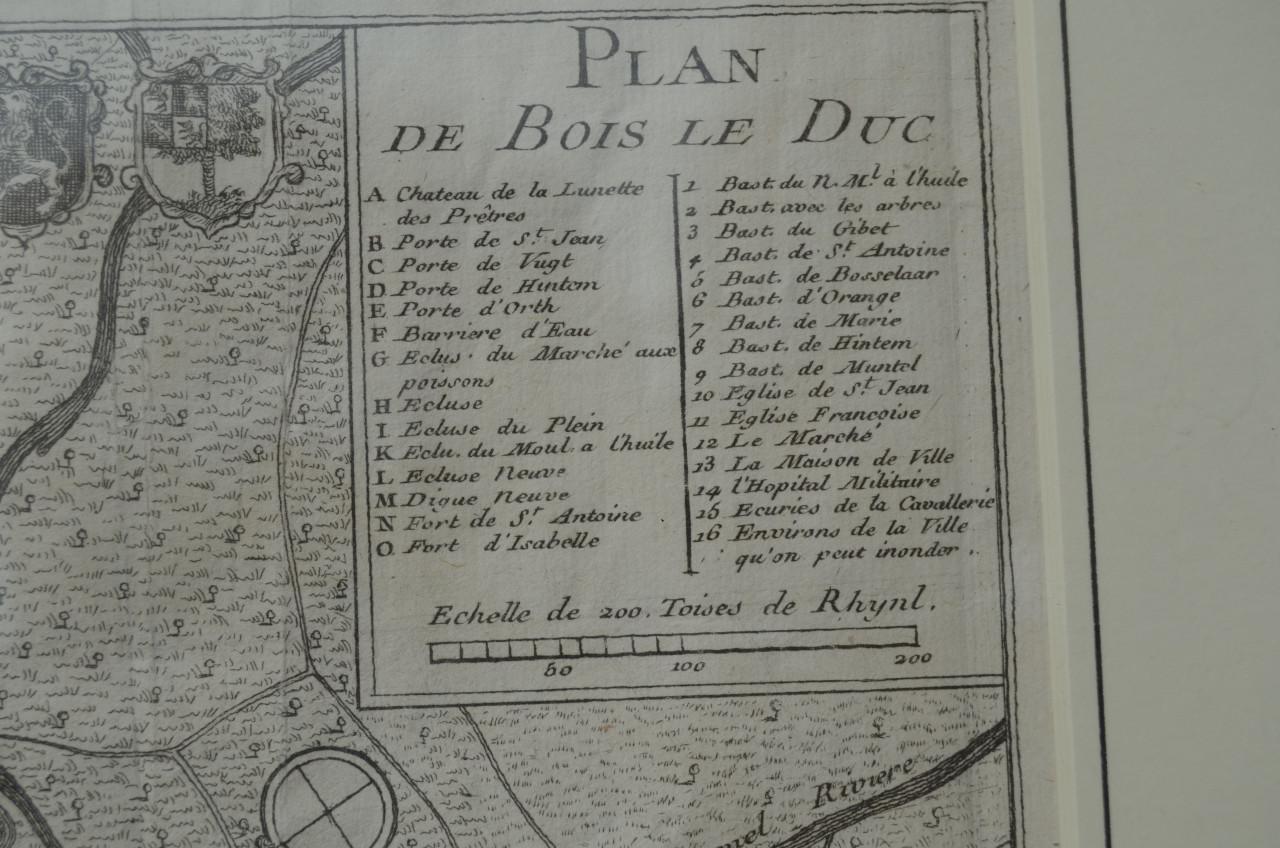 PLAN
DE BOIS LE DUC
A Chateau de la Lunette
des Prêtres
B Porte de St. Jean
C Porte de Vugt
D Porte de Hintem
E Porte d'Orth
F Barriere d'Eau
G Eclus. du Marché aux
poissons
H Ecluse
I Ecluse du Plein
K Eclu. du Moul. a l'huile
L Ecluse Neuve
M Digue Neuve
N Fort de St. Antoine
O Fort d'Isabelle
1 Bast. du N. Ml. à l'huile
2 Bast. avec les arbres
3 Bast. du Gibet
4 Bast. de St. Antoine
5 Bast. de Bosselaar
6 Bast. d'Orange
7 Bast. de Marie
8 Bast. de Hintem
9 Bast. de Muntel
10 Eglise de St. Jean
11 Eglise Françoise
12 Le Marché
13 La Maison de Ville
14 l'Hopital Militaire
15 Ecuries de la Cavallerie
16 Environs de la Ville
qu'on peut inonder.
Echelle de 200. Toises de Rhynl.
50 100 200
Riviere